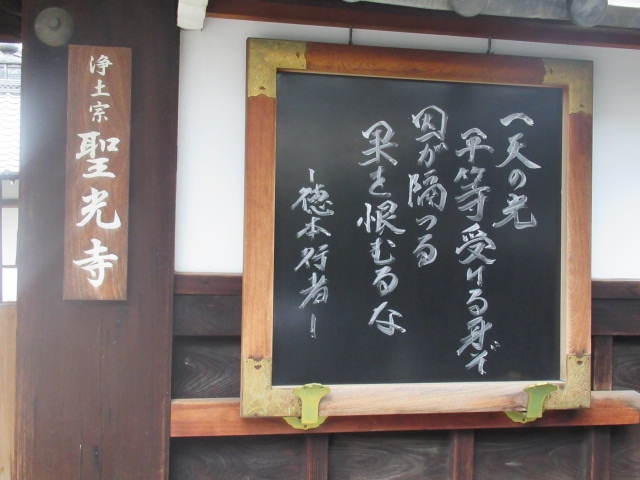 浄土宗
聖光寺
一天の光
平等受ける身ぞ
因が隔つる
果を恨むるな
-徳本行者-